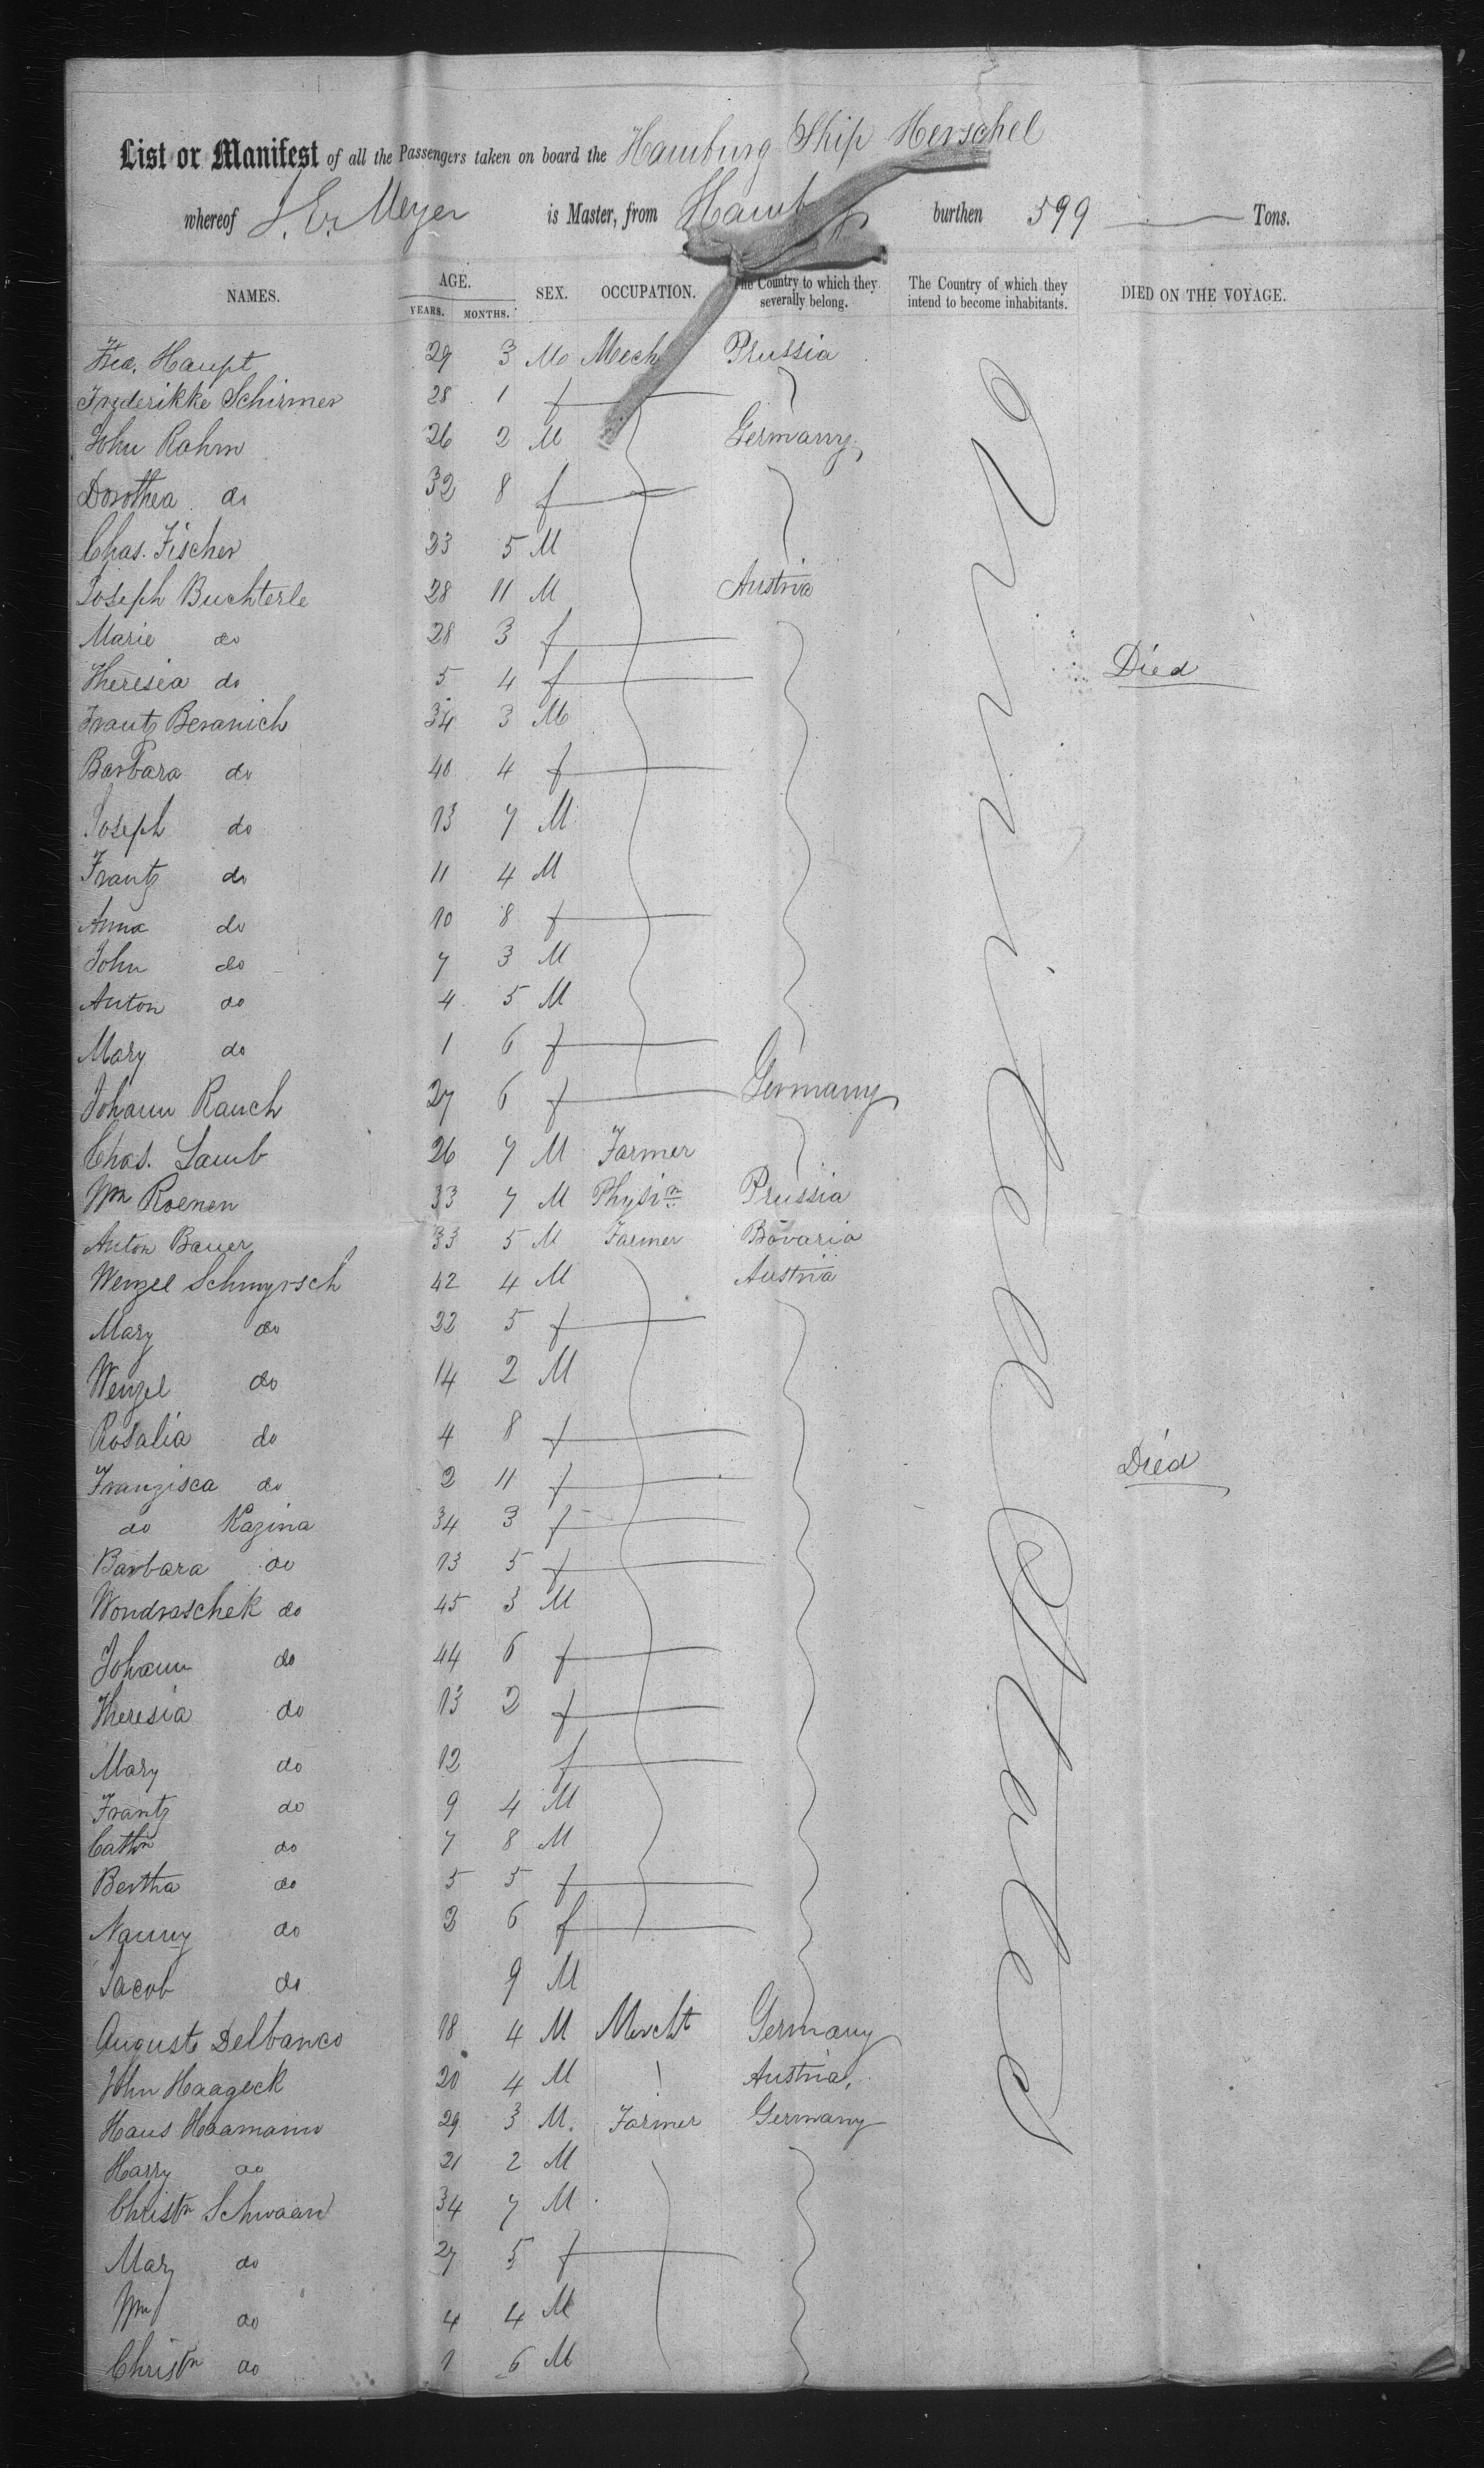 List or Manifest of all the Passengers taken on board the Hamburg Ship Herschel
whereof Meyer is Master, from Hamb burthen 599 Tons.
NAMES. AGE. YEARS. MONTHS. SEX. OCCUPATION. The Country to which they severally belong. The Country of which they intend to become inhabitants. DIED ON THE VOYAGE.
United States
Haupt 29 3 M Mech Prussia
Frederikke Schirmer 28 1 f
John Rahm 26 2 M Germany
Dorothea do 32 8 f
Chas. Fischer 23 5 M
Joseph Buchterle 28 11 M Austria
Marie do 28 3 f
Theresia do 5 4 f Died
Frantz Beranich 34 3 M
Barbara do 40 4 f
Joseph do 13 7 M
Frantz do 11 4 M
Anna do 10 8 f
John do 7 3 M
Anton do 4 5 M
Mary do 1 6 f
Johann Rauch 27 6 f Germany
Chas. Lamb 26 7 M Farmer
Wm Roenen 33 7 M Physin Prussia
Anton Bauer 33 5 M Farmer Bavaria
Wenzel Schmyrsch 42 4 M Austria
Mary do 22 5 f
Wenzel do 14 2 M
Rosalia do 4 8 f
Franzisca do 2 11 f Died
do Kazina 34 3 f
Barbara do 13 5 f
Wondraschek do 45 3 M
Johann do 44 6 f
Theresia do 13 2 f
Mary do 12 f
Frantz do 9 4 M
Cathn do 7 8 M
Bertha do 5 5 f
Nanny do 3 6 f
Jacob do 9 M
August Delbanco 18 4 M Mercht Germany
John Haageck 20 4 M Austria
Hans Haamann 29 3 M. Farmer Germany
Harry do 21 2 M
Christn Schwaan 34 7 M
Mary do 27 5 f
Wm do 4 4 M
Christn do 1 6 M